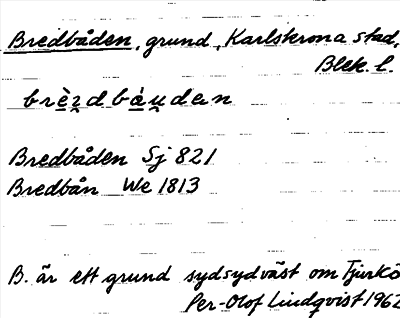 Bredbåden, grund, Karlskrona stad,
Blek. l.
Bredbåden Sj 821
Bredbån We 1813
B. är ett grund sydsydväst om Tjurkö
Per-Olof Lindqvist 1962